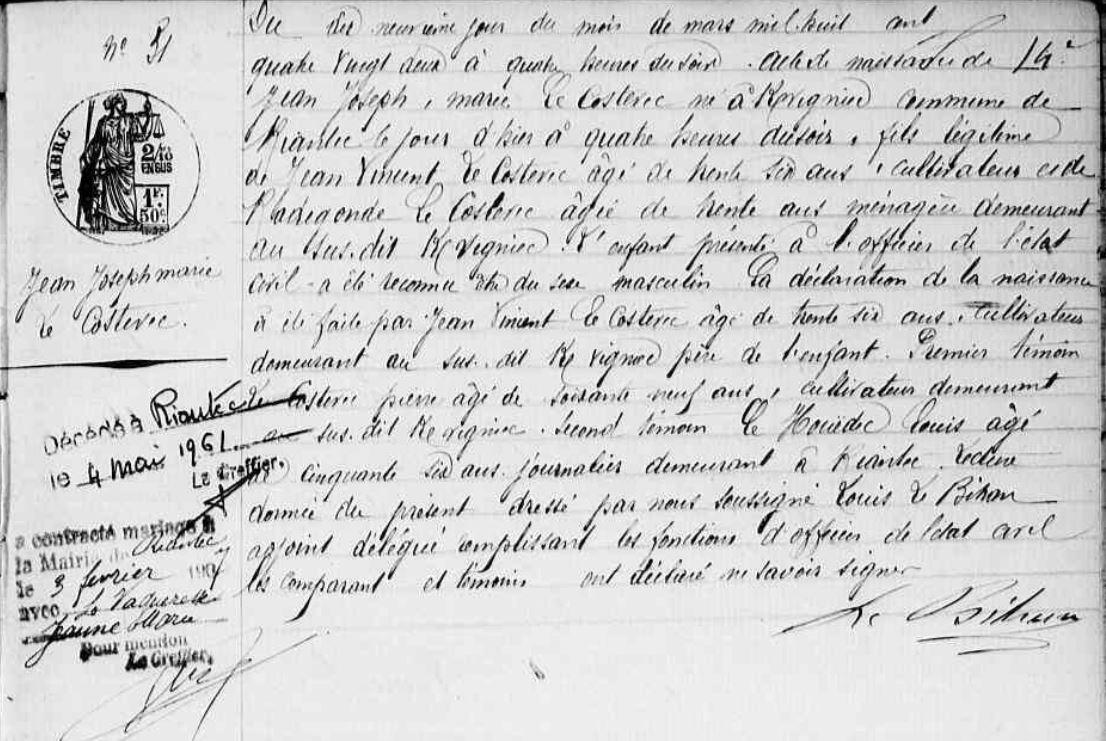 N° 51
TIMBRE
2/10
EN SUS
1F.
50c
Jean Joseph marie
Le Costevec.
Décédé à Riantec
le 4 mai 1961
Le Greffier,
a contracté mariage à
la Mairie de Riantec
le 3 février 190
avec Le
Jeanne Marie
Pour mention
Le Greffier,
Du neuvième jour du mois de mars mil huit cent
quatre vingt deux à quatre heures du soir. Acte de naissance de
Jean Joseph, marie Le Costevec né à Kervignec commune de
Riantec le jour d'hier à quatre heures du soir, fils légitime
de Jean Vincent Le Costevec âgé de trente six ans, cultivateur et de
Radegonde Le Costevec âgée de trente ans ménagère demeurant
au sus.dit Kervignec. L'enfant présenté à l'officier de l'état
civil a été reconnu être du sexe masculin La déclaration de la naissance
a été faite par Jean Vincent Le Costevec âgé de trente six ans, Cultivateur
demeurant au sus.dit Kervignec père de l'enfant. Premier témoin
Le Costevec pierre âgé de soixante neuf ans, cultivateur demeurant
au sus.dit Kervignec. Second témoin Le Houëdec Louis âgé
de cinquante six ans journalier demeurant à Riantec. Lecture
donnée du présent dressé par nous soussigné Louis Le Bihan
adjoint délégué remplissant les fonctions d'officier de l'état civil
les comparant et témoins ont déclaré ne savoir signer
Le Bihan